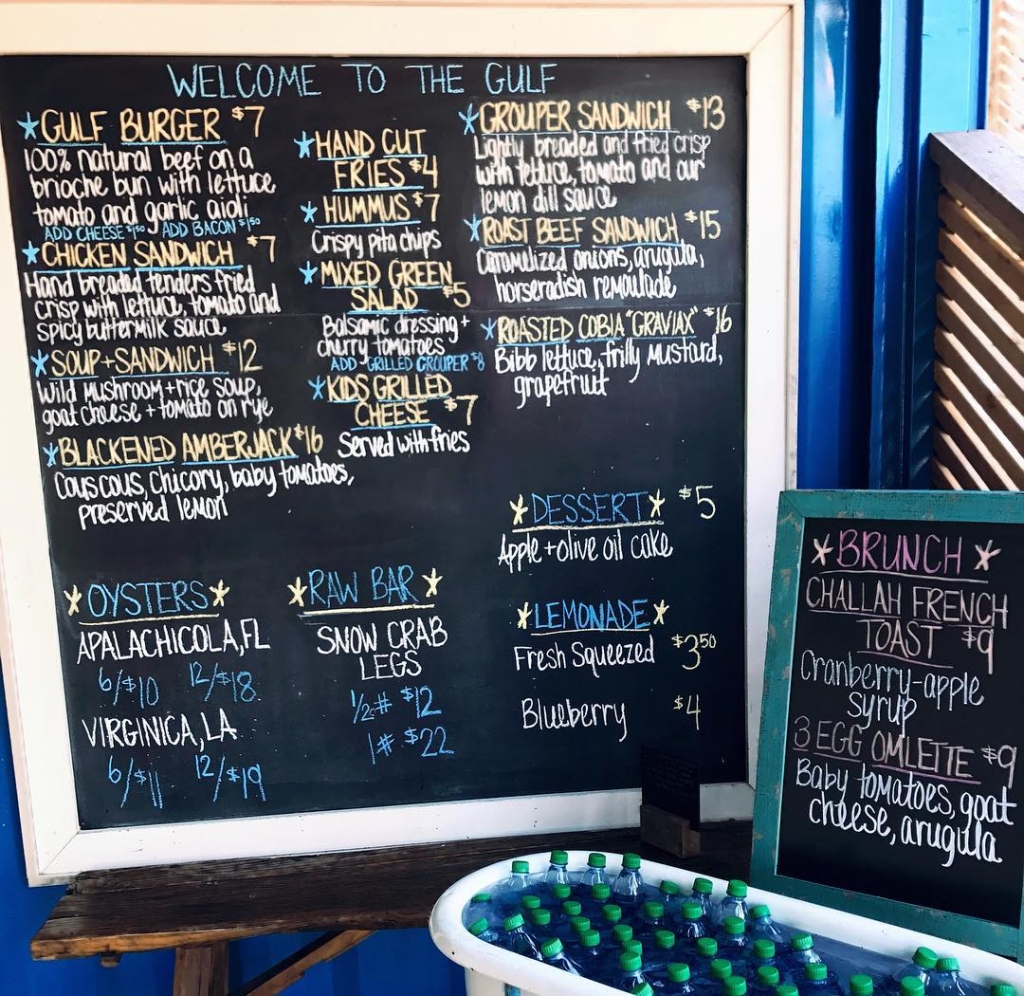 WELCOME TO THE GULF
*GULF BURGER $7
100% natural beef on a
brioche bun with lettuce
tomato and garlic aioli
ADD CHEESE $1.50 ADD BACON $1.50
*CHICKEN SANDWICH $7
Hand breaded tenders fried
crisp with lettuce, tomato and
spicy buttermilk sauce
*SOUP+SANDWICH $12
Wild mushroom + rice soup,
goat cheese + tomato on rye
*BLACKENED AMBERJACK $16
Couscous, chicory, baby tomatoes,
preserved lemon
*HAND CUT
FRIES $4
*HUMMUS $7
Crispy pita chips
*MIXED GREEN
SALAD $5
Balsamic dressing +
cherry tomatoes
ADD GRILLED GROUPER $8
*KIDS GRILLED
CHEESE $7
Served with fries
*GROUPER SANDWICH $13
Lightly breaded and fried crisp
with lettuce, tomato and our
lemon dill sauce
*ROAST BEEF SANDWICH $15
Caramelized onions, arugula,
horseradish remoulade
*ROASTED COBIA "GRAVIAX" $16
Bibb lettuce, frilly mustard,
grapefruit
*DESSERT* $5
Apple + olive oil cake
*OYSTERS*
APALACHICOLA, FL
6/$10 12/$18
VIRGINICA, LA
6/$11 12/$19
*RAW BAR*
SNOW CRAB
LEGS
1/2# $12
1# $22
*LEMONADE*
Fresh Squeezed $3.50
Blueberry $4
*BRUNCH*
CHALLAH FRENCH
TOAST $9
Cranberry-apple
syrup
3 EGG OMLETTE $9
Baby tomatoes, goat
cheese, arugula